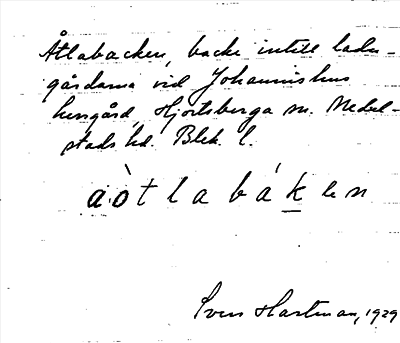 Åtlabacken, backe intill ladu-
gårdarna vid Johannishus
herrgård, Hjortsberga sn. Medel-
stads hd. Blek. l.
aòtlabáken
Sven Hartman, 1929